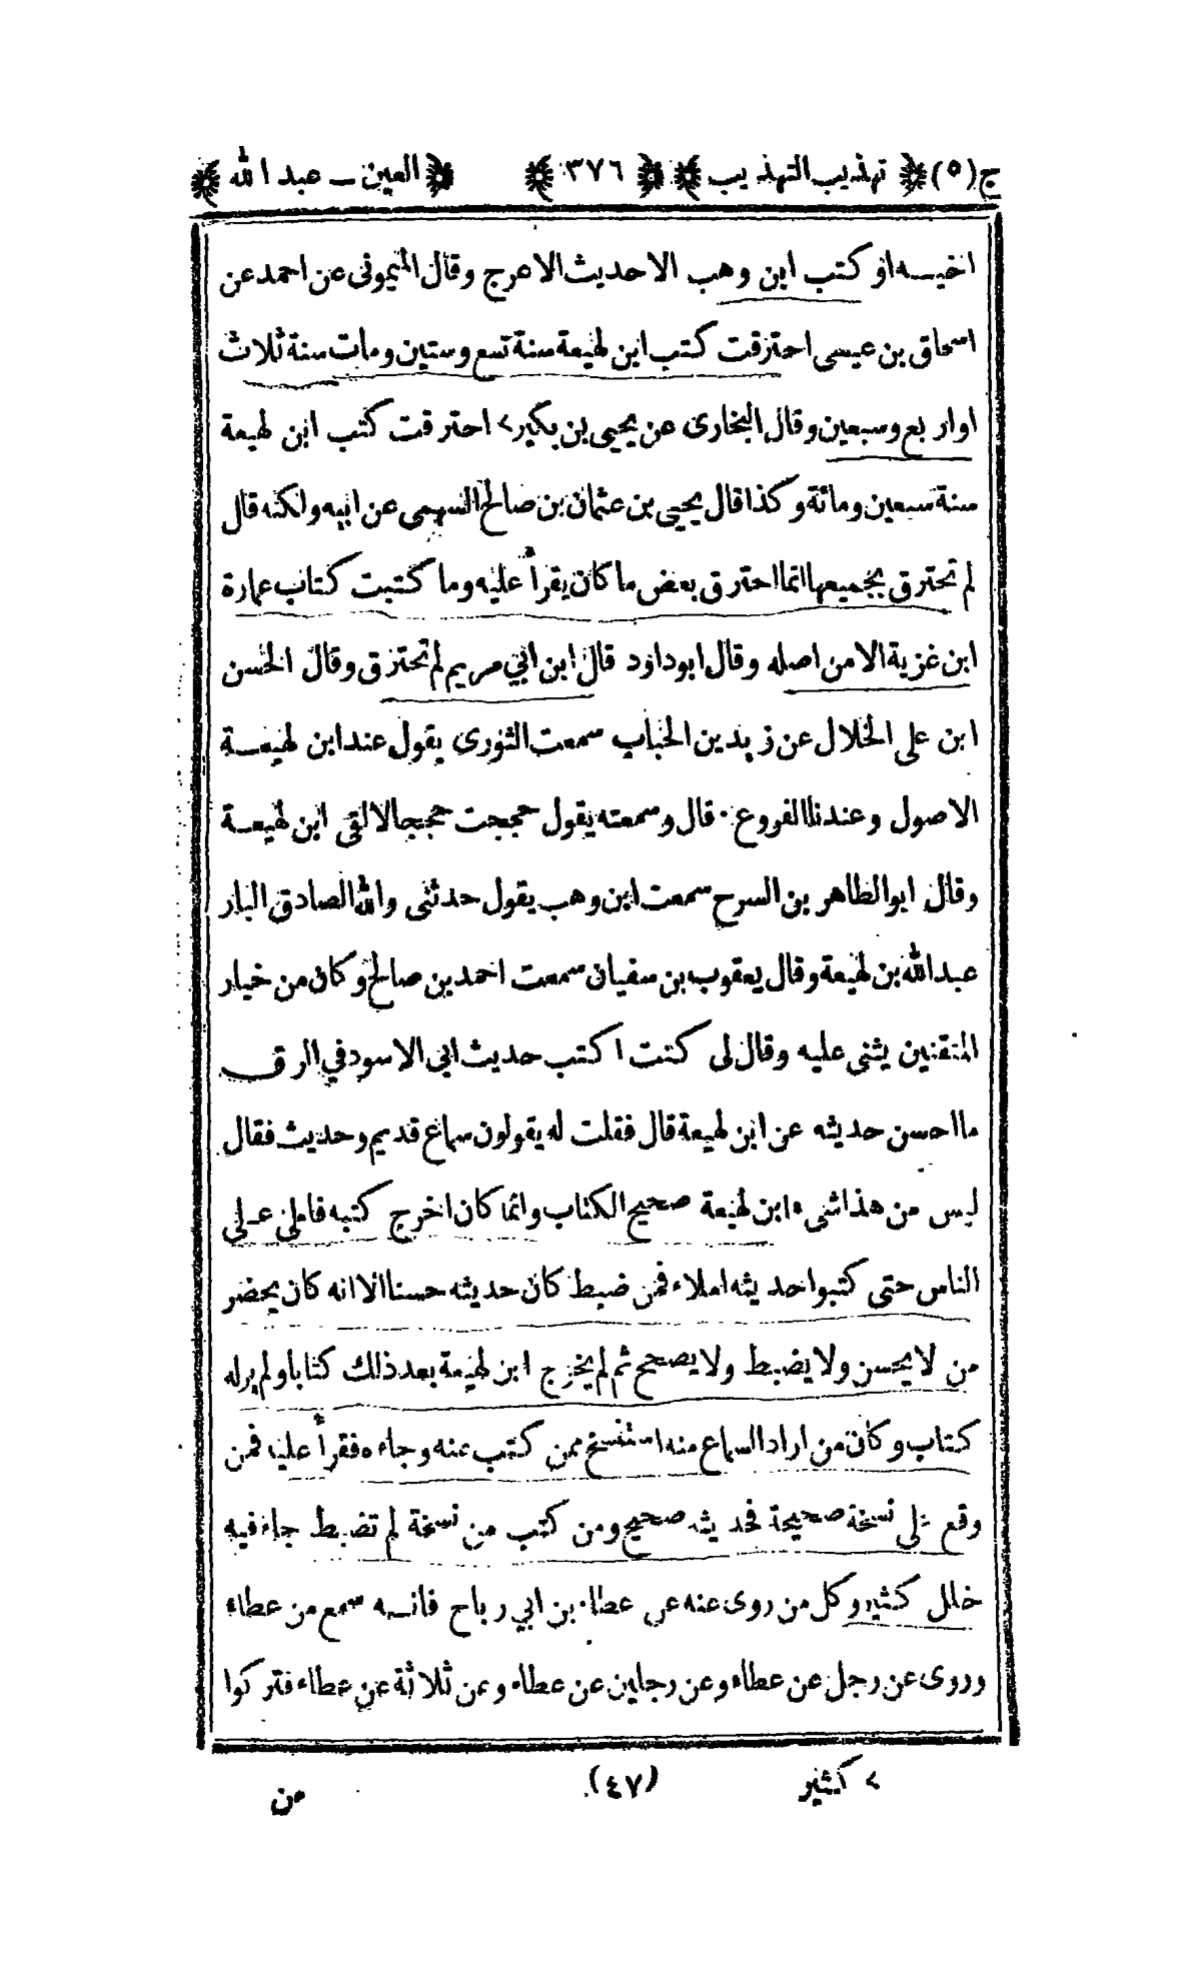 ج (٥) ﴿ تهذيب التهذيب ﴾ ﴿ ٣٧٦ ﴾ ﴿ العين ــ عبد الله ﴾
اخيسه او كتب ابن وهب الاحديث الاعرج وقال الميمونى عن احمد عن
اسحاق بن عيسى احترقت كتب ابن لهيعة سنة تسع وستين ومات سنة ثلاث
اوار بع وسبعين وقال البخارى عن يحيى بن بكير > احترقت كتب ابن لهيعة
سنة سبعين ومائة وكذا قال يحيى بن عثمان بن صالح السهمى عن ابيه ولكنه قال
لم تحترق بجميعها انما احترق بعض ما كان يقرأ عليه وما كتبت كتاب عمارة
ابن غزية الا من اصله وقال ابو داود قال ابن ابي مريم لم تحترق وقال الحسن
ابن على الخلال عن زيد بن الحباب سمعت الثورى يقول عند ابن لهيعة
الاصول وعندنا الفروع ٠ قال وسمعته يقول حججت حججا لالقى ابن لهيعة
وقال ابو الطاهر بن السرح سمعت ابن وهب يقول حدثنى والله الصادق البار
عبد الله بن لهيعة وقال يعقوب بن سفيان سمعت احمد بن صالح وكان من خيار
المتقنين يثنى عليه وقال لى كنت اكتب حديث ابى الاسود في الرق
ما احسن حديثه عن ابن لهيعة قال فقلت له يقولون سماع قديم وحديث فقال
ليس من هذا شىء ابن لهيعة صحيح الكتاب وانما كان اخرج كتبه فاملى على
الناس حتى كتبوا حديثه املاء فمن ضبط كان حديثه حسنا الا انه كان يحضر
من لا يحسن ولا يضبط ولا يصحح ثم لم يخرج ابن لهيعة بعد ذلك كتابا ولم يرله
كتاب وكان من اراد السماع منه استنسخ ممن كتب عنه وجاءه فقرأ عليه فمن
وقع على نسخة صحيحة فحديثه صحيح ومن كتب من نسخة لم تضبط جاء فيه
خلل كثير وكل من روى عنه عن عطاء بن ابي رباح فانه سمع من عطاء
وروى عن رجل عن عطاء وعن رجلين عن عطاء وعن ثلاثة عن عطاء فتركوا
> كثير
(٤٧)
من